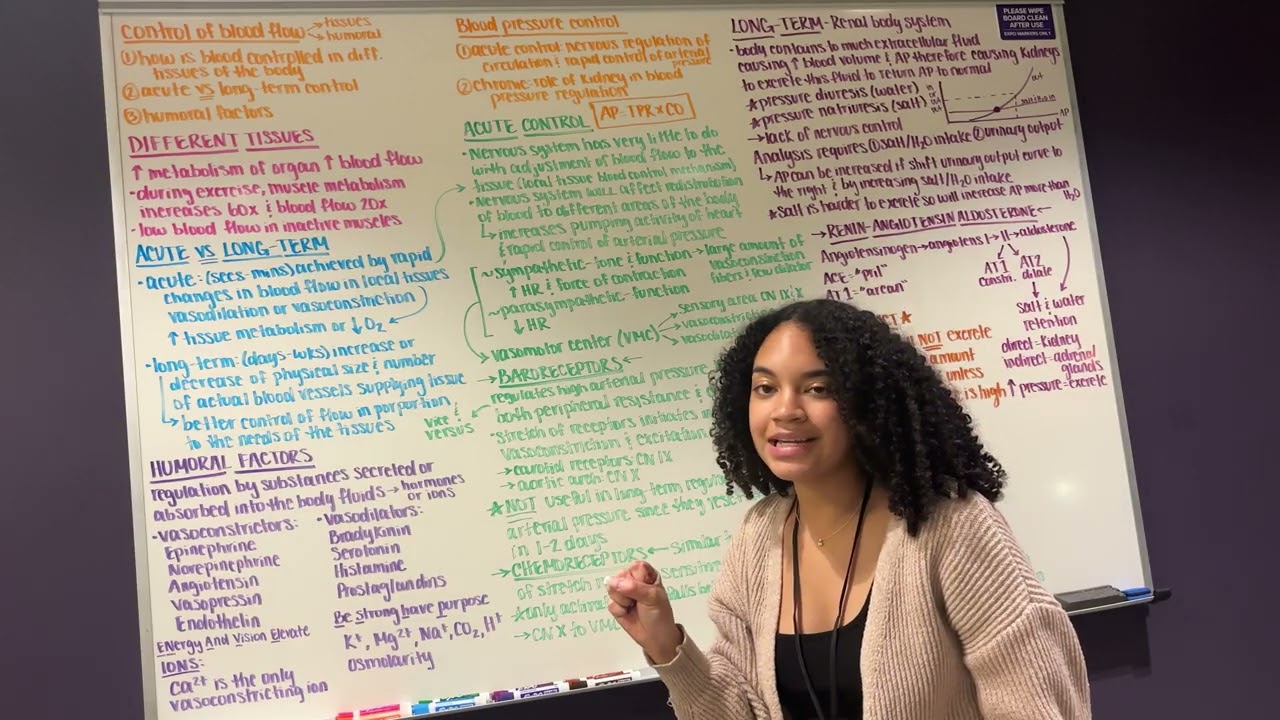 Control of blood flow → tissues
→ humoral
① how is blood controlled in diff.
tissues of the body
② acute vs long-term control
③ humoral factors
DIFFERENT TISSUES
↑ metabolism of organ ↑ blood flow
-during exercise, muscle metabolism
increases 60x & blood flow 20x
-low blood flow in inactive muscles
ACUTE VS LONG-TERM
-acute: (secs-mins) achieved by rapid
changes in blood flow in local tissues
vasodilation or vasoconstriction
↑ tissue metabolism or ↓ O₂
-long-term: (days-wks) increase or
decrease of physical size & number
of actual blood vessels supplying tissue
↳ better control of flow in porportion
to the needs of the tissues
HUMORAL FACTORS
regulation by substances secreted or
absorbed into the body fluids → hormones
or ions
-vasoconstrictors:
Epinephrine
Norepinephrine
Angiotensin
Vasopressin
Endothelin
ENergy And Vision Elevate
IONS:
Ca²⁺ is the only
vasoconstricting ion
-vasodilators:
Bradykinin
Serotonin
Histamine
Prostaglandins
Be strong have purpose
K⁺, Mg²⁺, Na⁺, CO₂, H⁺
osmolarity
Blood pressure control
① acute control nervous regulation of
circulation & rapid control of arterial
pressure
② chronic-role of kidney in blood
pressure regulation
AP = TPR × CO
ACUTE CONTROL
-Nervous system has very little to do
with adjustment of blood flow to the
→ tissue (local tissue blood control mechanism)
-Nervous system will affect redistribution
of blood to different areas of the body
↳ increases pumping activity of heart
& rapid control of arterial pressure
~sympathetic-tone & function → large amount of
vasoconstriction
fibers & few dilator
↑ HR & force of contraction
~parasympathetic-function
↓ HR
vasomotor center (VMC) → sensory area CN IX & X
→ BARORECEPTORS ←
regulates high arterial pressure
both peripheral resistance &
vice &
versus
-stretch of receptors
vasoconstriction & excitation
→ carotid receptors: CN IX
→ aortic arch: CN X
★ NOT useful in long term
arterial pressure since they
in 1-2 days
→ CHEMORECEPTORS ← similar
of stretch
★ only
→ CN X to VMC
LONG-TERM - Renal body system
-body contains to much extracellular fluid
causing ↑ blood volume & AP therefore causing kidneys
to excrete this fluid to return AP to normal
★ pressure diuresis (water)
★ pressure natriuresis (salt)
→ lack of nervous control
out
AP
Analysis requires ① salt/H₂O intake ② urinary output
↳ AP can be increased if shift urinary output curve to
the right & by increasing salt/H₂O intake
★ salt is harder to excrete so will increase AP more than
H₂O
→ RENIN-ANGIOTENSIN ALDOSTERONE ←
Angiotensinogen → angiotens I → II → aldosterone
ACE = "pril"
AT 1 =
AT1
constri.
AT2
dilate
salt & water
retention
direct = kidney
indirect = adrenal
glands
↑ pressure = excrete
NOT excrete
amount
unless
is high
PLEASE WIPE
BOARD CLEAN
AFTER USE
EXPO MARKERS ONLY